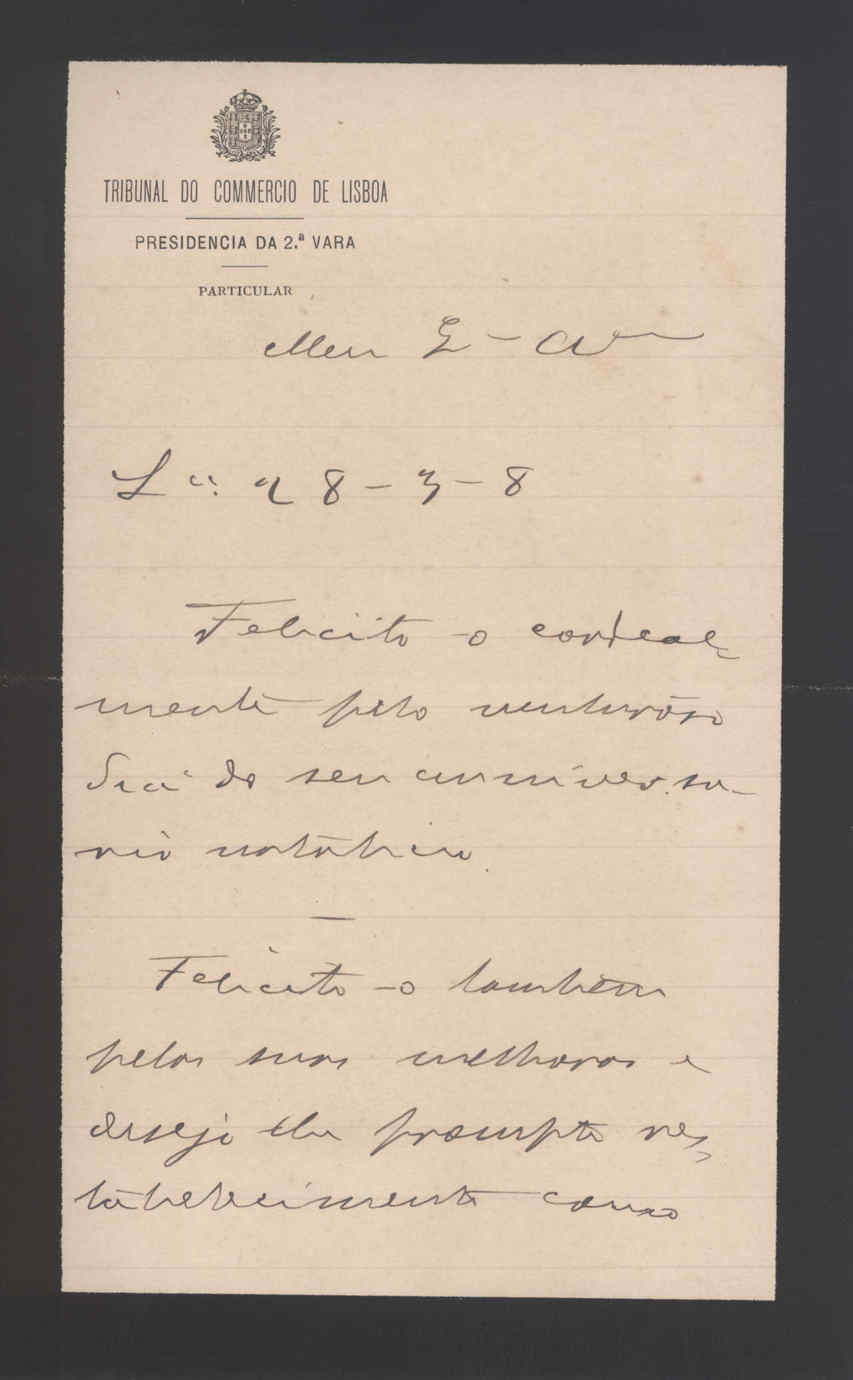 TRIBUNAL DO COMMERCIO DE LISBOA
PRESIDENCIA DA 2.ª VARA
PARTICULAR
Meu
Lxª. 28-3-8
Felicito-o cordeal-
mente pelo venturoso
dia do seu anniversa-
rio natalicio.
Felicito-o tambem
pelas suas melhoras e
desejo-lhe prompto res-
tabelecimento como